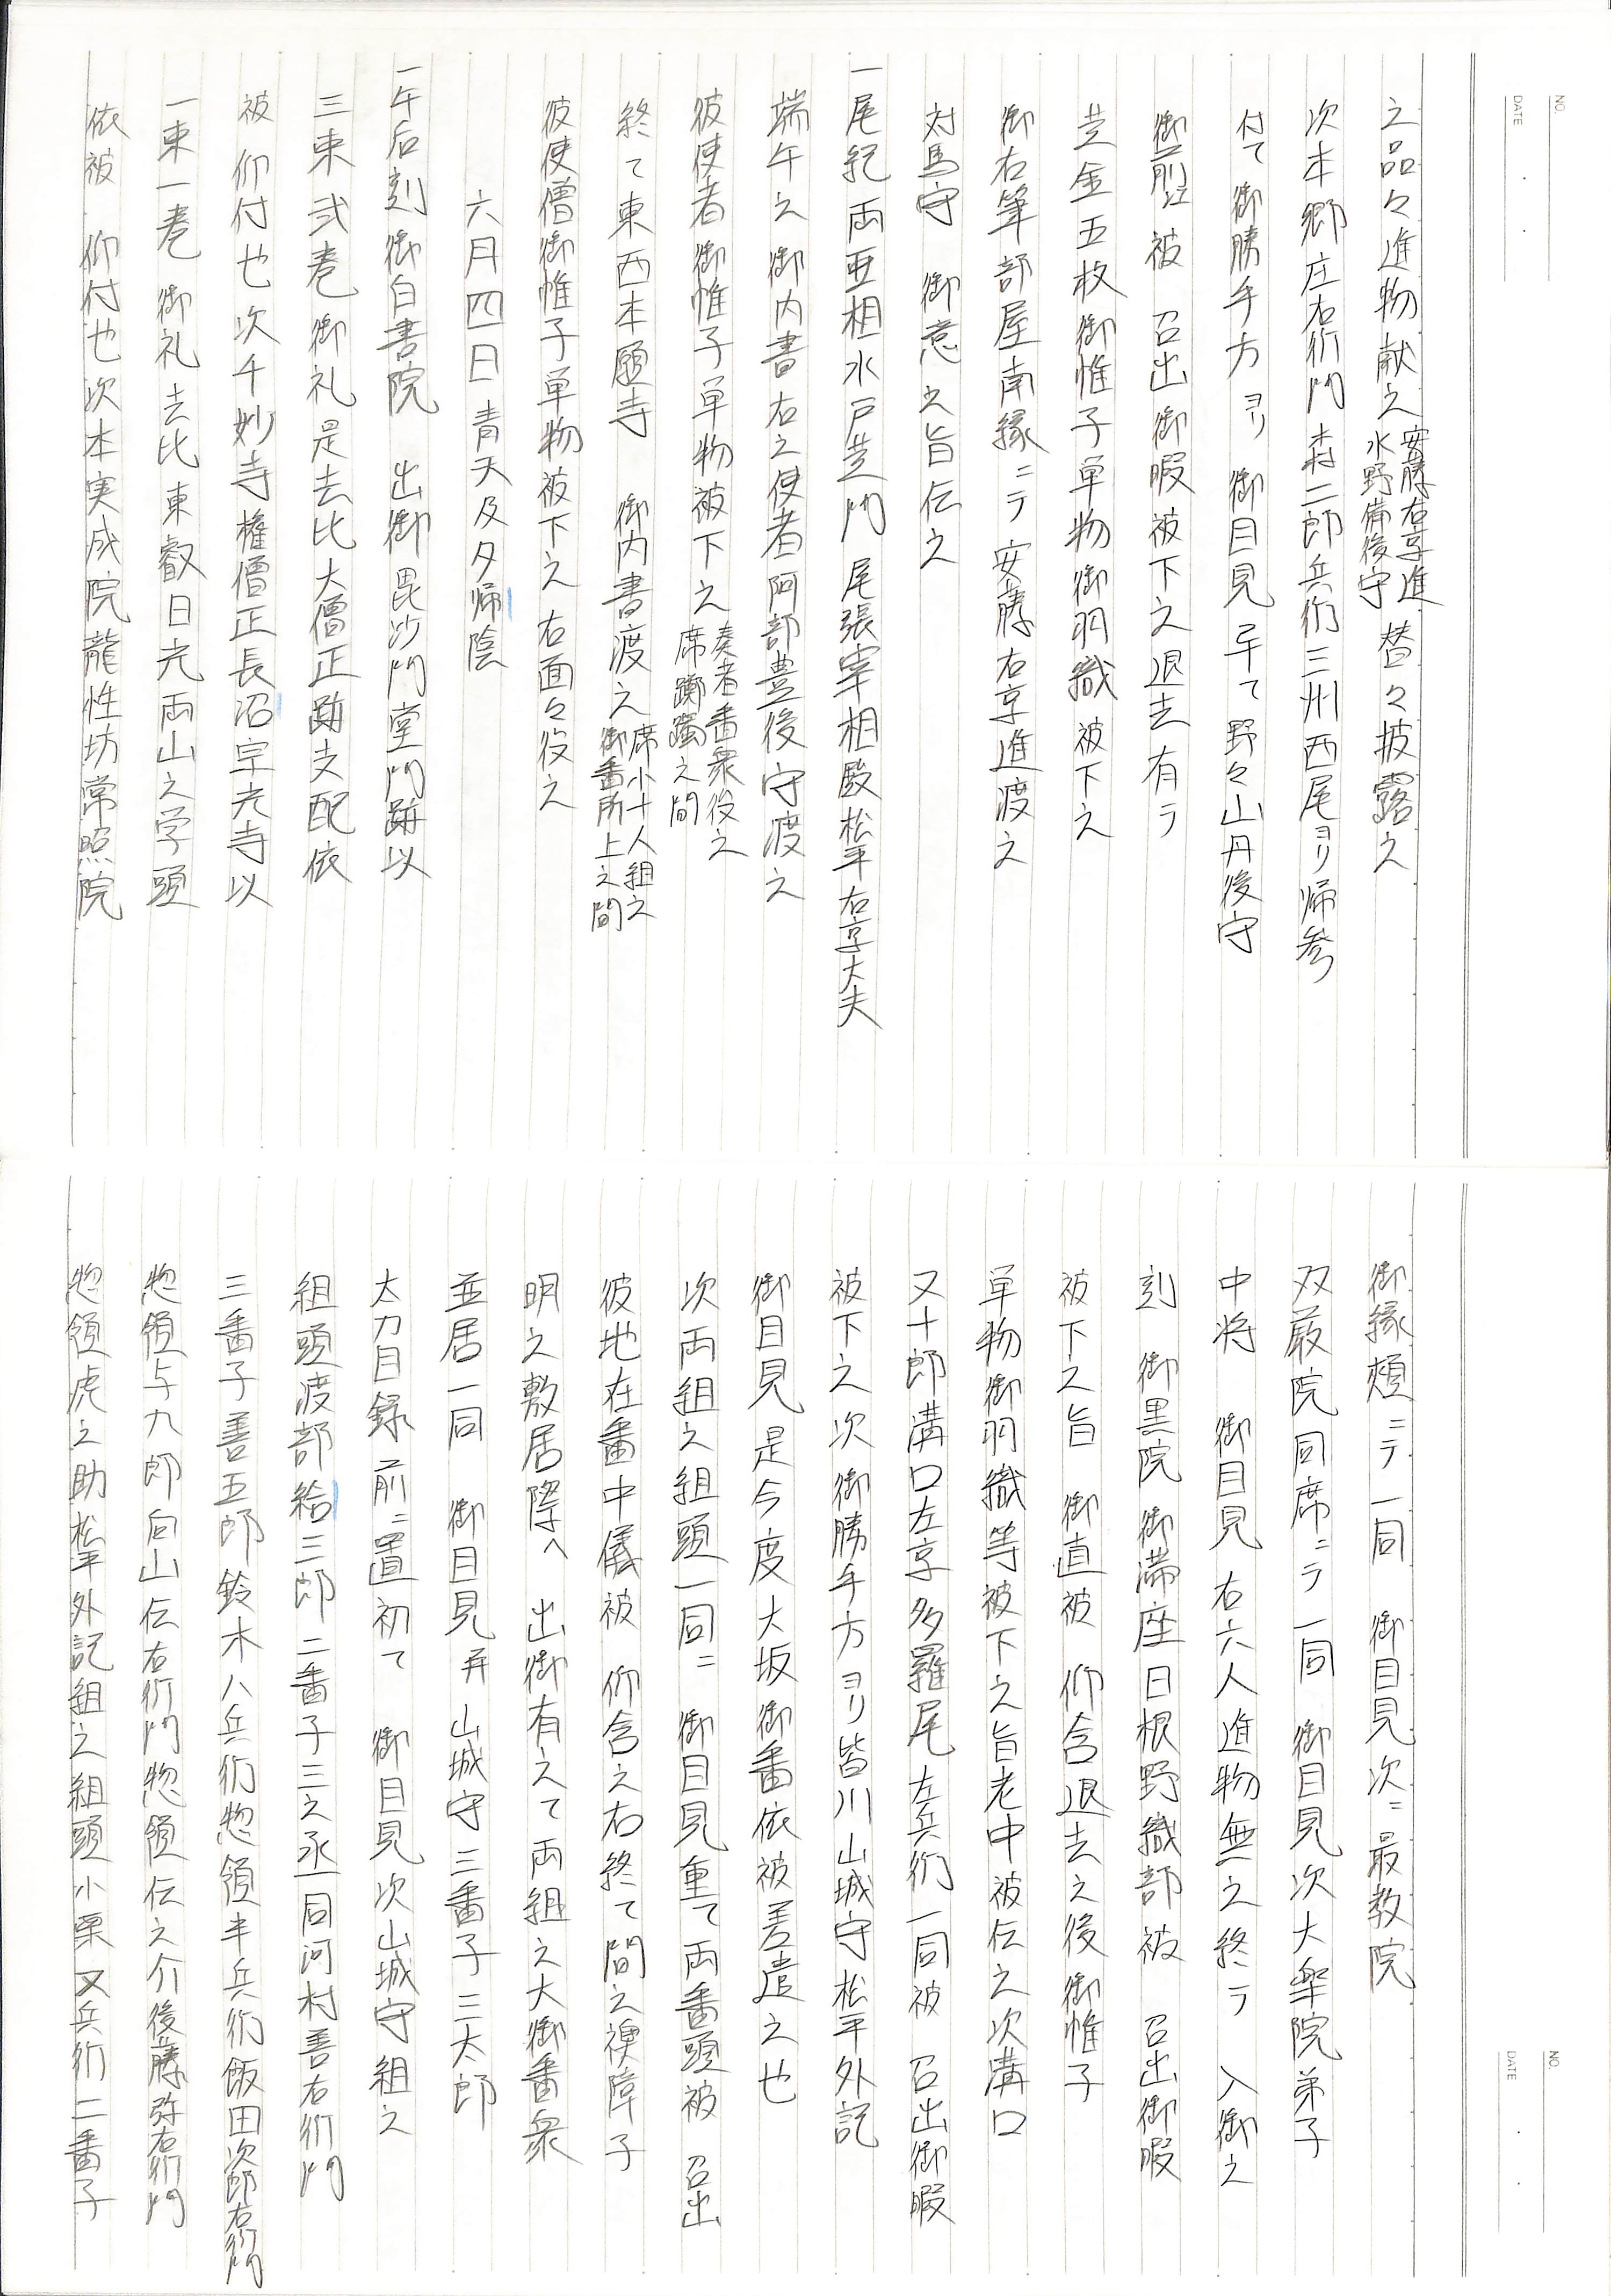 NO.
DATE
之品々進物献之 安藤右京進 水野備後守 替々披露之
次本郷庄右衛門森二郎兵衛三州西尾ヨリ帰参
付て 御勝手方ヨリ 御目見畢て野々山丹後守
御前江被 召出御暇被下之退去有テ
芝金五枚御帷子単物御羽織被下之
御右筆部屋南縁ニテ 安藤右京進渡之
対馬守 御意之旨伝之
一尾紀両亜相水戸芝門 尾張宰相殿松平右京大夫
端午之御内書右之使者阿部豊後守渡之
彼使者御帷子単物被下之 奏者番衆役之 席躑躅之間
終て東西本願寺 御内書渡之 席小十人組之 御番所上之間
彼使僧御帷子単物被下之右面々役之
六月四日 青天及夕帰陰
一午后刻御白書院 出御毘沙門堂門跡以
三束弐巻御礼是去比大僧正跡支配依
被 仰付也次千妙寺権僧正長沼宗光寺以
一束一巻御礼去比東叡日光両山之学頭
依被 仰付也次本実成院龍性坊常照院
NO.
DATE
御縁頬ニテ一同 御目見次ニ最教院
双厳院同席ニテ一同 御目見次大楽院弟子
中将 御目見右六人進物無之終テ 入御之
刻 御黒院御滞座日根野織部被 召出御暇
被下之旨 御直被 仰含退去之後御帷子
単物御羽織等被下之旨老中被伝之次溝口
又十郎溝口左京多羅尾左兵衛一同被 召出御暇
被下之次御勝手方ヨリ皆川山城守松平外記
御目見是今度大坂御番依被差遣之也
次両組之組頭一同ニ 御目見重て両番頭被 召出
彼地在番中儀被 仰含之右終て間之襖障子
明之敷居際へ 出御有之て両組之大御番衆
並居一同 御目見并山城守三番子三太郎
太刀目録前ニ置初て 御目見次山城守組之
組頭渡部給三郎二番子三之丞一同河村善右衛門
三番子善五郎鈴木八兵衛惣領半兵衛飯田次郎右衛門
惣領与九郎向山伝右衛門惣領伝之介後藤弥右衛門
惣領虎之助松平外記組之組頭小栗又兵衛二番子